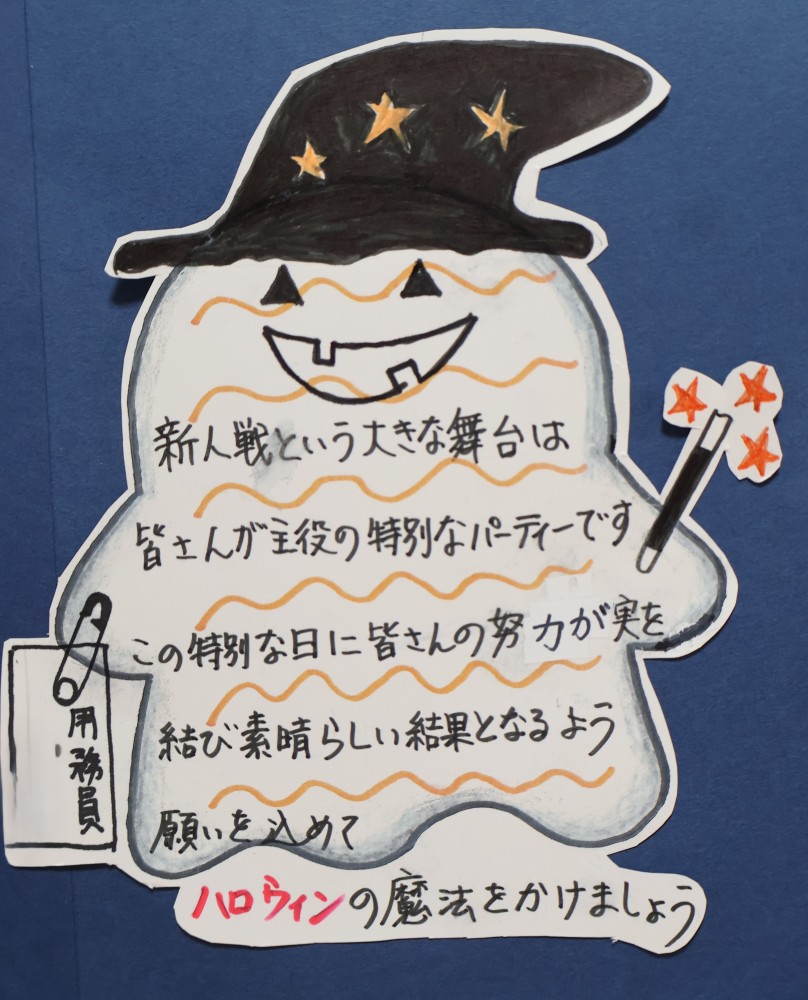 新人戦という大きな舞台は
皆さんが主役の特別なパーティーです
この特別な日に皆さんの努力が実を
結び素晴らしい結果となるよう
願いを込めて
ハロウィンの魔法をかけましょう
用務員